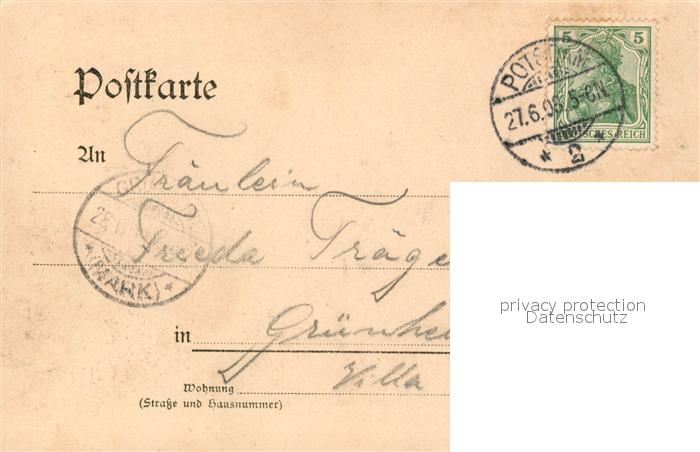 Postkarte
5 5
POTSDAM
27.6.06. 5-6N.
* 2 *
DEUTSCHES REICH
An Fräulein
Frieda Träge
(MARK)
in Grünhe
Villa
Wohnung
(Straße und Hausnummer)
privacy protection
Datenschutz